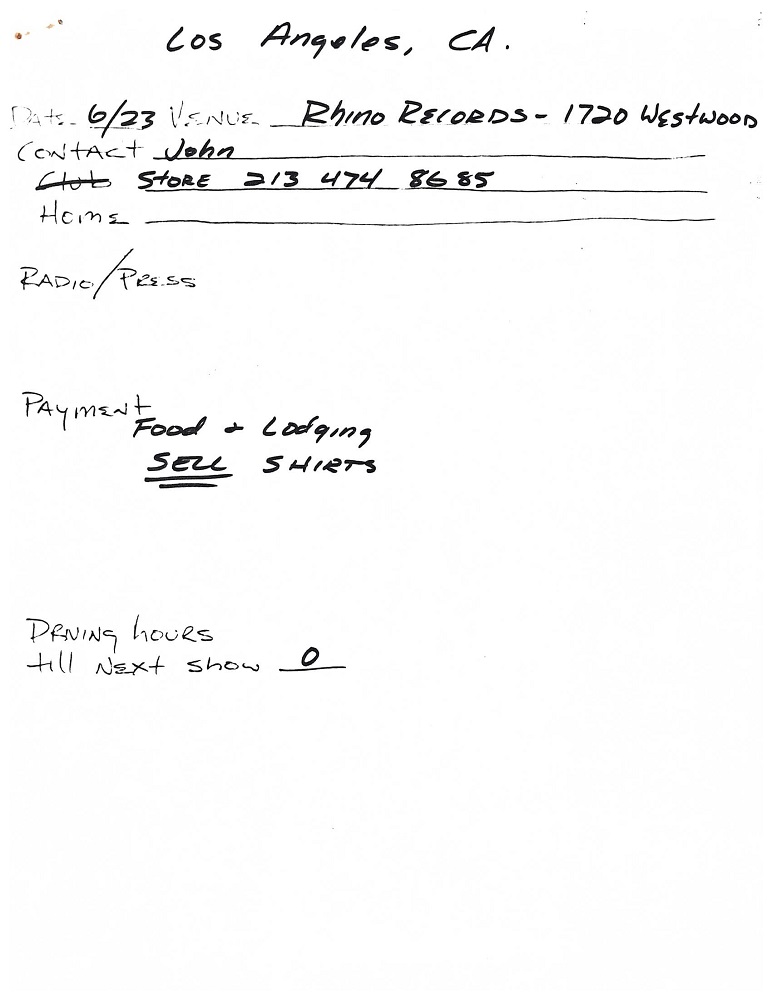 Los Angeles, CA.
Date 6/23 VENUE Rhino RECORDS - 1720 WESTWOOD
CONTACT John
Club STORE 213 474 8685
Home
RADIO/PRESS
PAYMENT
Food + Lodging
SELL SHIRTS
DRIVING hours
till NEXT show 0